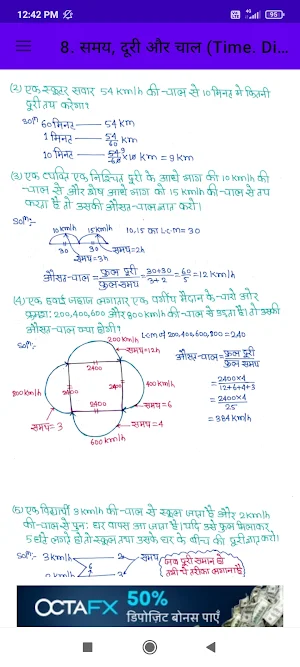 12:42 PM
95
8. समय, दूरी और चाल (Time. Di...
(2) एक स्कूटर सवार 54 km/h की चाल से 10 मिनट में कितनी
दूरी तय करेगा?
सoln 60 मिनट — 54 km
1 मिनट — 54/60 km
10 मिनट — 54/60 × 10 km = 9 km
(3) एक व्यक्ति एक निश्चित दूरी के आधे भाग को 10 km/h की
चाल से और शेष आधे भाग को 15 km/h की चाल से तय
करता है तो उसकी औसत चाल ज्ञात करो।
soln:-
10km/h 15km/h 10, 15 का L.C.M = 30
30 30 समय=2h
समय=3h
औसत-चाल = कुल दूरी/कुल समय = 30+30/3+2 = 60/5 = 12 km/h
(4) एक हवाई जहाज लगातार एक वर्गाकार मैदान के चारों ओर
क्रमशः 200, 400, 600 और 800 km/h की चाल से उड़ता है। तो उसकी
औसत चाल क्या होगी?
L.c.m of 200, 400, 600, 800 = 240
soln:-
200 km/h
समय=12h
औसत-चाल = कुल दूरी/कुल समय
2400
800km/h 2400 2400 400 km/h
= 2400×4/12+6+4+3
2400
समय=6
= 2400×4/25
समय=3
समय=4
= 384 km/h
600 km/h
(5) एक विद्यार्थी 3 km/h की चाल से स्कूल जाता है और 2 km/h
की चाल से पुनः घर वापस आ जाता है। यदि उसे कुल मिलाकर
5 घंटे लगते हो तो स्कूल तथा उसके घर के बीच की दूरी ज्ञात करो।
soln:- 3 km/h 2 समय
जब दूरी समान हो
6
2 km/h 3
तभी ये तरीका लगाना है
OCTAFX
50%
डिपोज़िट बोनस पाएँ